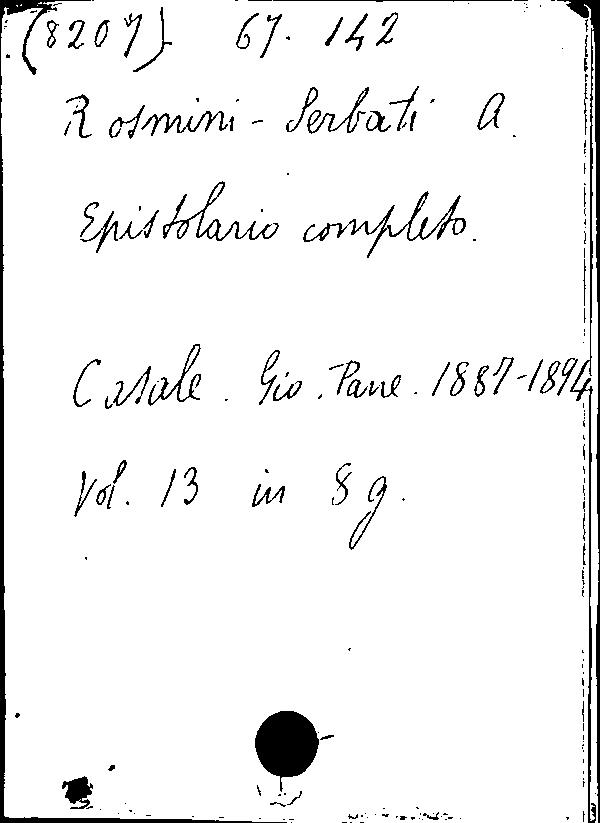 (8207) 67. 142
Rosmini-Serbati A.
Epistolario completo.
Casale. Gio. Pane. 1887-1894
Vol. 13 in 8 g.